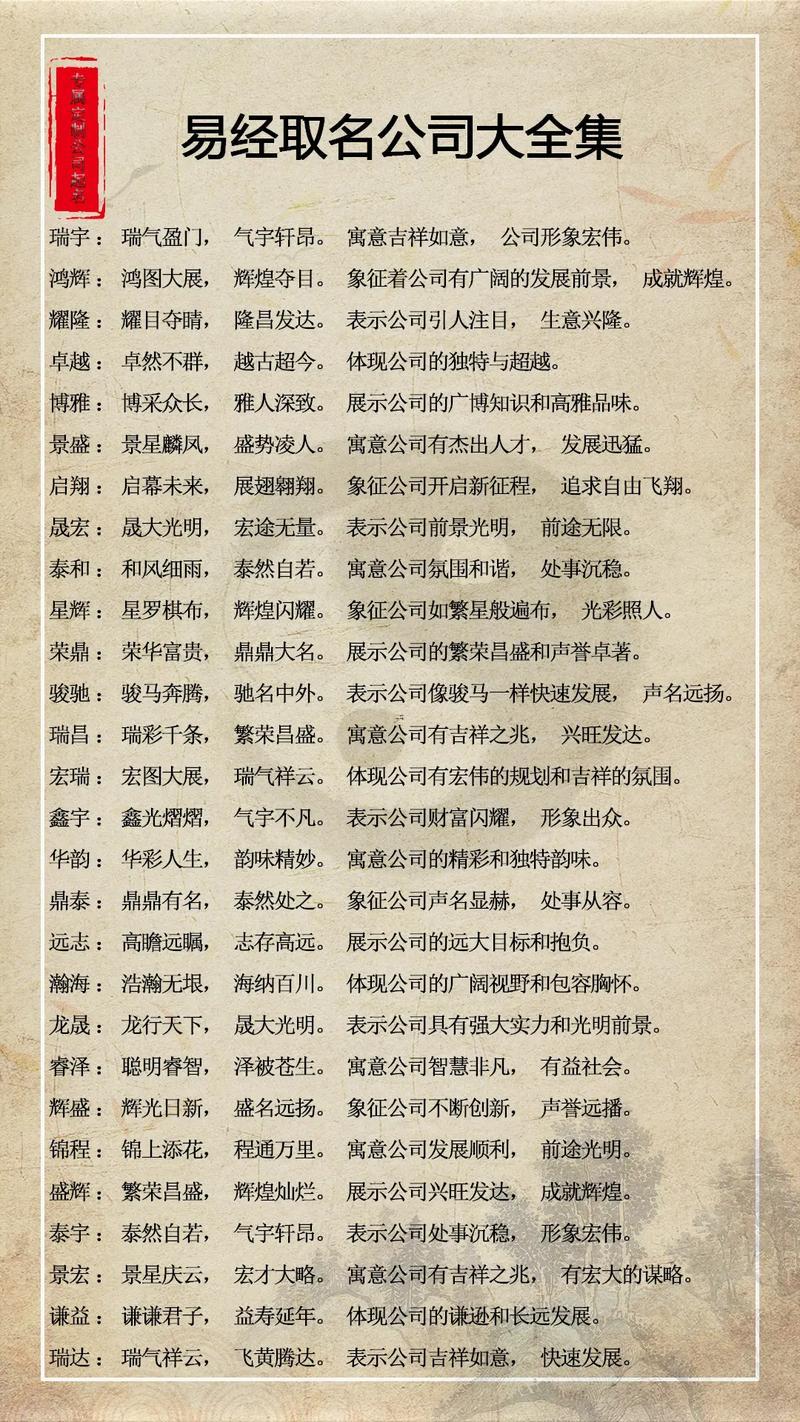 易经取名公司大全集
瑞宇： 瑞气盈门， 气宇轩昂。 寓意吉祥如意， 公司形象宏伟。
鸿辉： 鸿图大展， 辉煌夺目。 象征着公司有广阔的发展前景， 成就辉煌。
耀隆： 耀目夺晴， 隆昌发达。 表示公司引人注目， 生意兴隆。
卓越： 卓然不群， 越古超今。 体现公司的独特与超越。
博雅： 博采众长， 雅人深致。 展示公司的广博知识和高雅品味。
景盛： 景星麟凤， 盛势凌人。 寓意公司有杰出人才， 发展迅猛。
启翔： 启幕未来， 展翅翱翔。 象征公司开启新征程， 追求自由飞翔。
晟宏： 晟大光明， 宏途无量。 表示公司前景光明， 前途无限。
泰和： 和风细雨， 泰然自若。 寓意公司氛围和谐， 处事沉稳。
星辉： 星罗棋布， 辉煌闪耀。 象征公司如繁星般遍布， 光彩照人。
荣鼎： 荣华富贵， 鼎鼎大名。 展示公司的繁荣昌盛和声誉卓著。
骏驰： 骏马奔腾， 驰名中外。 表示公司像骏马一样快速发展， 声名远扬。
瑞昌： 瑞彩千条， 繁荣昌盛。 寓意公司有吉祥之兆， 兴旺发达。
宏瑞： 宏图大展， 瑞气祥云。 体现公司有宏伟的规划和吉祥的氛围。
鑫宇： 鑫光熠熠， 气宇不凡。 表示公司财富闪耀， 形象出众。
华韵： 华彩人生， 韵味精妙。 寓意公司的精彩和独特韵味。
鼎泰： 鼎鼎有名， 泰然处之。 象征公司声名显赫， 处事从容。
远志： 高瞻远瞩， 志存高远。 展示公司的远大目标和抱负。
瀚海： 浩瀚无垠， 海纳百川。 体现公司的广阔视野和包容胸怀。
龙晟： 龙行天下， 晟大光明。 表示公司具有强大实力和光明前景。
睿泽： 聪明睿智， 泽被苍生。 寓意公司智慧非凡， 有益社会。
辉盛： 辉光日新， 盛名远扬。 象征公司不断创新， 声誉远播。
锦程： 锦上添花， 程通万里。 寓意公司发展顺利， 前途光明。
盛辉： 繁荣昌盛， 辉煌灿烂。 展示公司兴旺发达， 成就辉煌。
泰宇： 泰然自若， 气宇轩昂。 表示公司处事沉稳， 形象宏伟。
景宏： 景星庆云， 宏才大略。 寓意公司有吉祥之兆， 有宏大的谋略。
谦益： 谦谦君子， 益寿延年。 体现公司的谦逊和长远发展。
瑞达： 瑞气祥云， 飞黄腾达。 表示公司吉祥如意， 快速发展。